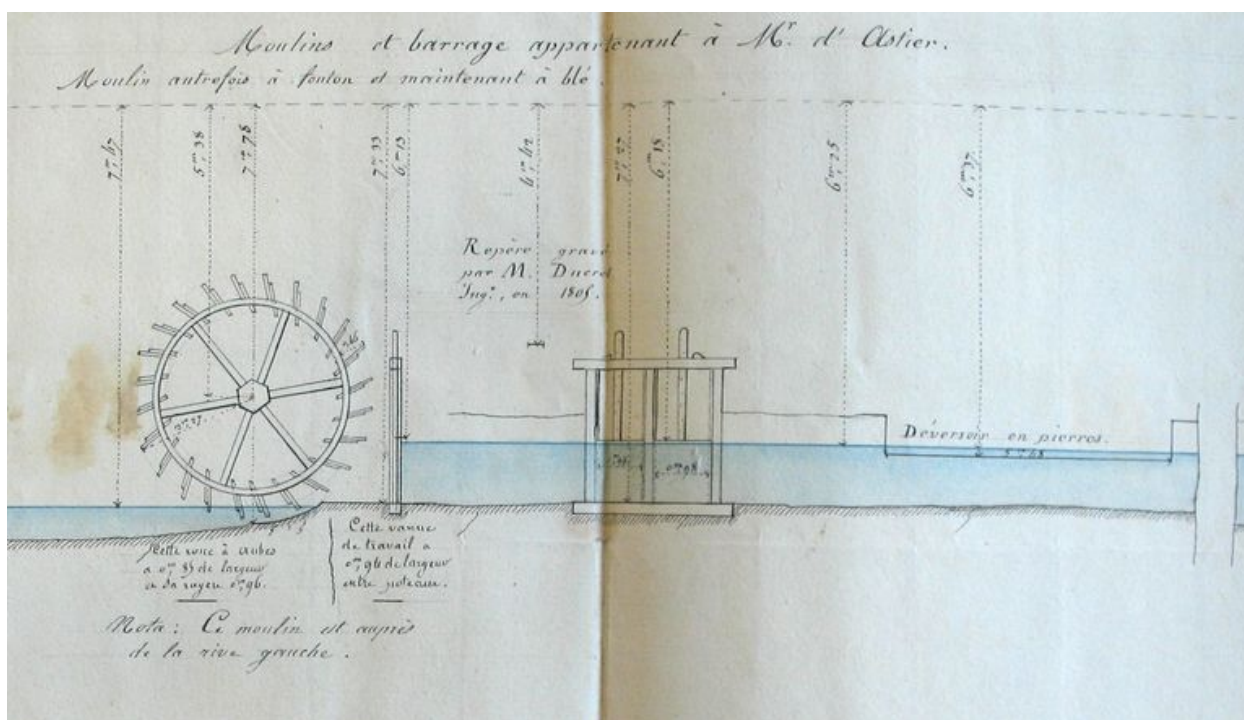 Moulins et barrage appartenant à Mr. d'Astier.
Moulin autrefois à foulon et maintenant à blé.
7m,67
5m,38
7m,78
7m,33
6m,13
4m,42
7m,27
6m,18
6m,25
6m,37
Repère gravé
par M. Ducros
Ingr., en 1805.
Déversoir en pierres.
0m,98
Cette roue à aubes
a de largeur
et sa rayon 0m,96.
Cette vanne
de travail a
0m,96 de largeur
entre poteaux.
Nota : Ce moulin est auprès
de la rive gauche.